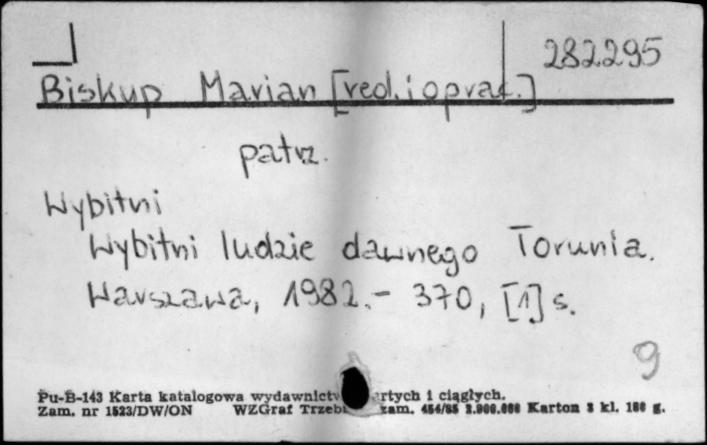 282295
Biskup Marian [red. i oprac.]
patrz.
Wybitni
Wybitni ludzie dawnego Torunia.
Warszawa, 1982.- 370, [1] s.
9
Pu-B-143 Karta katalogowa wydawnictw rtych i ciągłych.
Zam. nr 1523/DW/ON WZGraf Trzeb zam. 454/85 2.900.000 Karton 3 kl. 180 g.